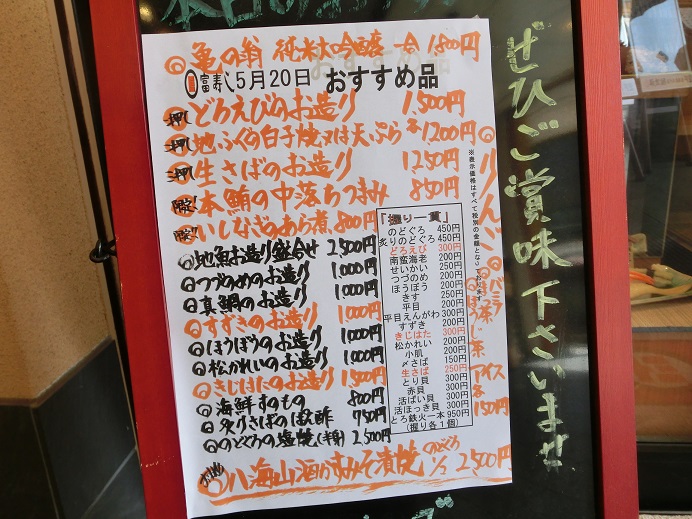 本日の
◎亀の翁 純米大吟醸 一合 1,800円
富寿し 5月20日 おすすめ品
押し どろえびのお造り 1,500円
押し 地ふぐの白子焼又は天ぷら 各1,200円
押し 生さばのお造り 1,250円
限定! 本鮪の中落ちつまみ 850円
限定! いしなぎのあら煮 800円
◎地魚お造り盛合せ 2,500円
◎つづのめのお造り 1,000円
◎真鯛のお造り 1,000円
◎すずきのお造り 1,000円
◎ほうぼうのお造り 1,000円
◎松かれいのお造り 1,000円
◎きじはたのお造り 1,500円
◎海鮮すのもの 800円
◎炙りさばのぽん酢 750円
◎のどぐろの塩焼(半身) 2,500円
◎八海山酒かすみそ漬焼 のどぐろ 1/2 2,500円
「握り一貫」
のどぐろ 450円
炙りのどぐろ 450円
どろえび 300円
南蛮海老 200円
せいかい 250円
つづのめ 200円
ほうぼう 200円
きす 200円
平目 200円
平目えんがわ 300円
すずき 200円
きじはた 300円
松かれい 200円
小肌 200円
〆さば 150円
生さば 250円
とり貝 300円
赤貝 300円
活ばい貝 300円
活ほっき貝 300円
とろ鉄火一本 950円
(握り各1個)
※表示価格はすべて税別の金額となっております
◎りんご
◎バニラ
◎抹茶
◎ほうじ茶
アイス
各150円
ぜひご賞味下さいませ